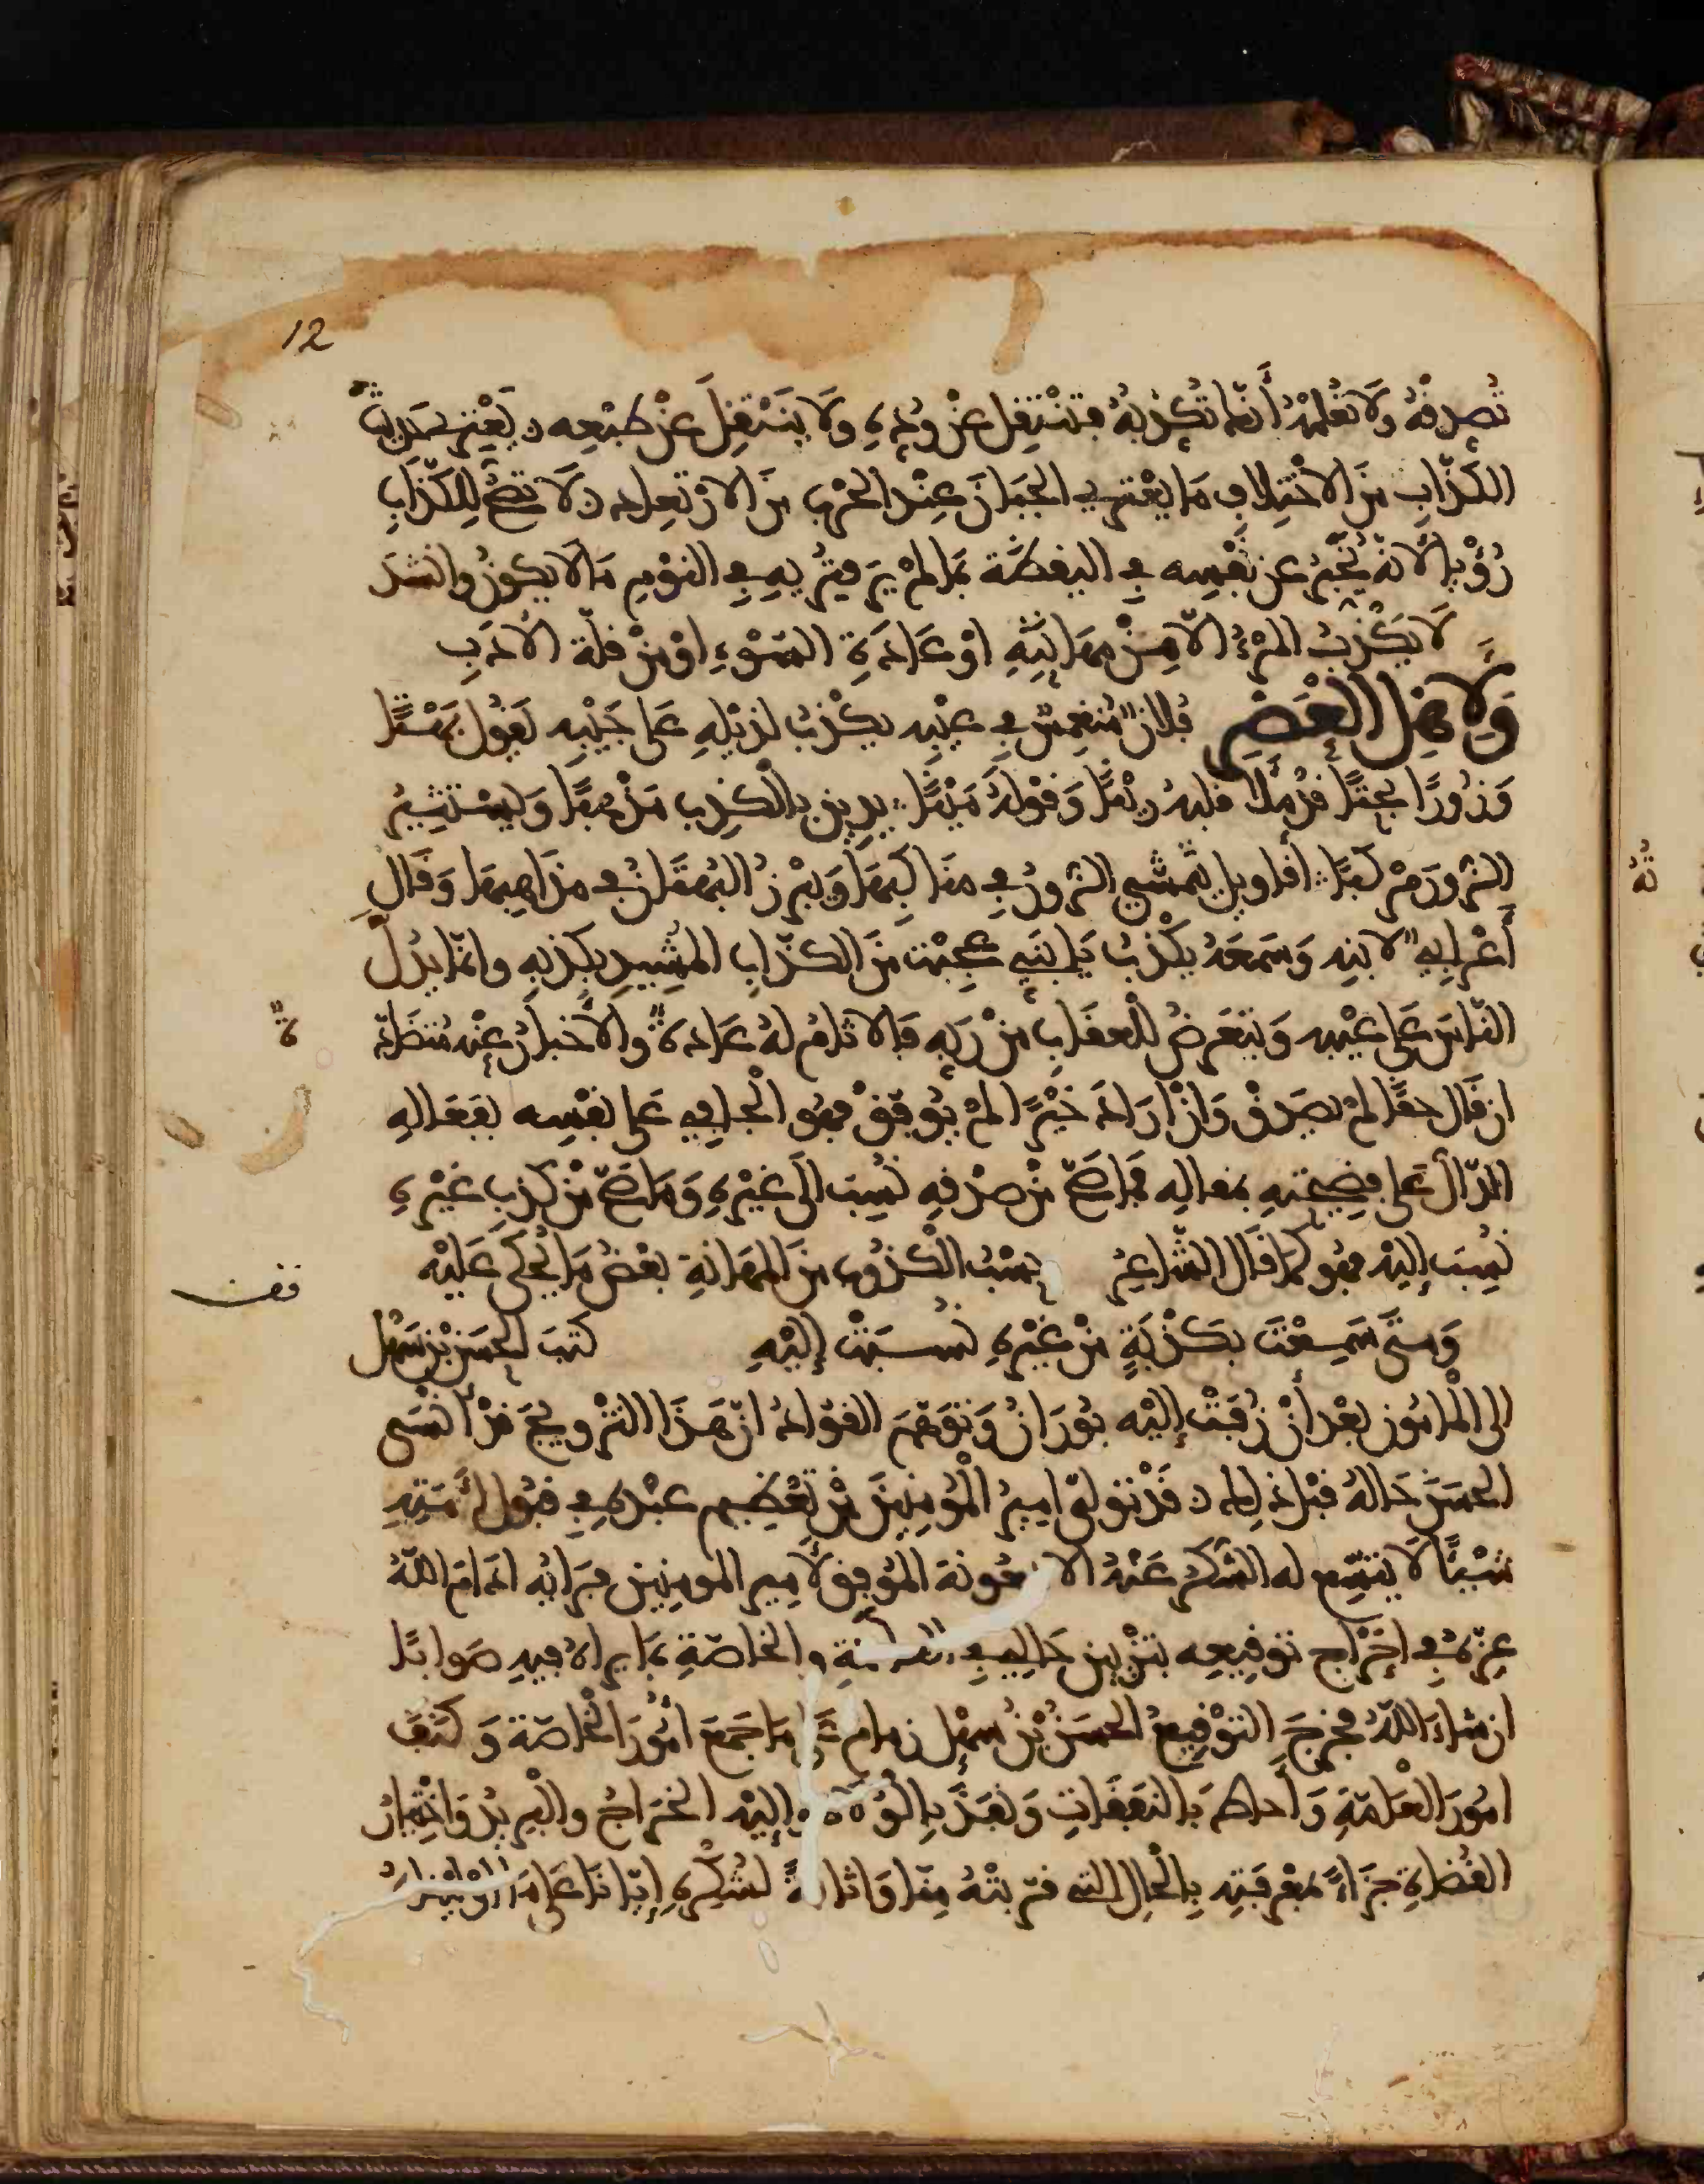 12
تصدقه ولا تعلمه أنها تكذبه فتنتقل عن وده ولا ينتقل عن طبعه يعتري حديث
الكذاب من الاختلاف ما يعتري الجبان عند الحرب من الارتعاد لا تصح للكذاب
رؤيا لانه يخبر عن نفسه في اليقظة بما لم ير فتريه في النوم ما لا يكون وانشد
لا يكذب المرء الا من مهانته او عادة السوء او من قلة الادب
ولاهل العصر فلان منغمس في عيبه يكذب لذيله على جيبه يقول بهتا
وزورا بحتا قد ملا قلبه رينا وقوله مينا يدين بالكذب مذهبا ويستثير
الزور مركبا أقاويل يتمشى الزور في مناكبها ويبرز البهتان في مذاهبها وقال
أعرابي لابنه وسمعه يكذب يا بني عجبت من الكذاب المشيد بكذبه وانما يدل
الناس على عيبه ويتعرض للعقاب من ربه فالاثام له عادة والأخبار عنه متضادة
ان قال حقا لم يصدق وان اراد خيرا لم يوفق فهو الجاني على نفسه بفعاله
الدال على فضيحته بمقاله فما صح من صدقه نسب الى غيره وما صح من كذب غيره
نسب إليه فهو كما قال الشاعر حسب الكذوب من المهانة بعض ما يحكى عليه
قف
ومتى سمعت بكذبة من غيره نسبت إليه كتب الحسن بن سهل
الى المامون بعد أن زفت إليه بوران وتوهم القواد ان هذا التزويج قد أنسى
الحسن حاله قبل ذلك قد تولى امير المؤمنين من تعظيم عبده في قبول أمته
شيئا لا يتسع له الشكر عنه الا بمعونة التوفيق لامير المومنين فرايه ادام الله
عزه في اخراج توقيعه بتزيين حالي في العامة والخاصة بما يراه فيه صوابا
ان شاء الله فخرج التوقيع الحسن بن سهل زمام على ما جمع امور الخاصة وكنف
امور العامة وأحاط بالنفقات ونفذ بالولاة وإليه الخراج والبريد واختيار
القضاة جزاء بمعرفته بالحال التي قربته منا واثابة لشكره إيانا على ما